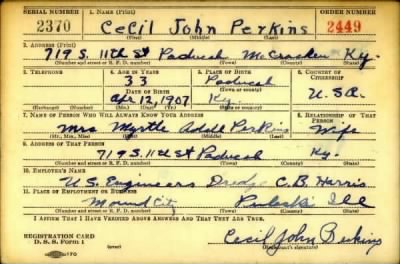 SERIAL NUMBER 1. NAME (Print) ORDER NUMBER
2370 Cecil John Perkins 2449
(First) (Middle) (Last)
2. ADDRESS (Print)
719 S. 11th St Paducah McCracken Ky.
(Number and street or R. F. D. number) (Town) (County) (State)
3. TELEPHONE 4. AGE IN YEARS 5. PLACE OF BIRTH 6. COUNTRY OF CITIZENSHIP
33 Paducah
DATE OF BIRTH (Town or county)
Apr 12, 1907 Ky. U.S.A.
(Exchange) (No.) (Mo.) (Day) (Yr.) (State or country)
7. NAME OF PERSON WHO WILL ALWAYS KNOW YOUR ADDRESS 8. RELATIONSHIP OF THAT PERSON
Mrs Myrtle Perkins Wife
(Mr., Mrs., Miss) (First) (Middle) (Last)
9. ADDRESS OF THAT PERSON
719 S. 11th St Paducah Ky.
(Number and street or R. F. D. number) (Town) (County) (State)
10. EMPLOYER'S NAME
U.S. Engineers Dredge C.B. Harris
11. PLACE OF EMPLOYMENT OR BUSINESS
Mound City Pulaski Ill
(Number and street or R. F. D. number) (Town) (County) (State)
I AFFIRM THAT I HAVE VERIFIED ABOVE ANSWERS AND THAT THEY ARE TRUE.
REGISTRATION CARD
D. S. S. Form 1 Cecil John Perkins
(Registrant's signature)